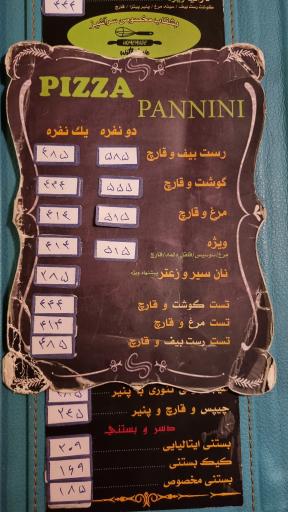 ۴۴۴
گوشت رست بیف / سینه مرغ / پنیر پیتزا / قارچ
بشقاب مخصوص سرآشپز
HOMEMADE
PIZZA
PANNINI
دو نفره یك نفره
رست بیف و قارچ ۵۸۵ ۴۸۵
گوشت و قارچ ۵۵۵ ۴۴۴
مرغ و قارچ ۵۱۵ ۴۱۴
ویژه ۵۱۵ ۴۱۴
نان سیر و زعتر پیشنهاد ویژه ۲۸۵
تست گوشت و قارچ ۴۴۴
تست مرغ و قارچ ۴۱۴
تست رست بیف و قارچ ۴۸۵
تنوری با پنیر
چیپس و قارچ و پنیر ۲۴۵
دسر و بستنی
بستنی ایتالیایی ۲۰۹
کیک بستنی ۱۶۹
بستنی مخصوص ۱۸۵